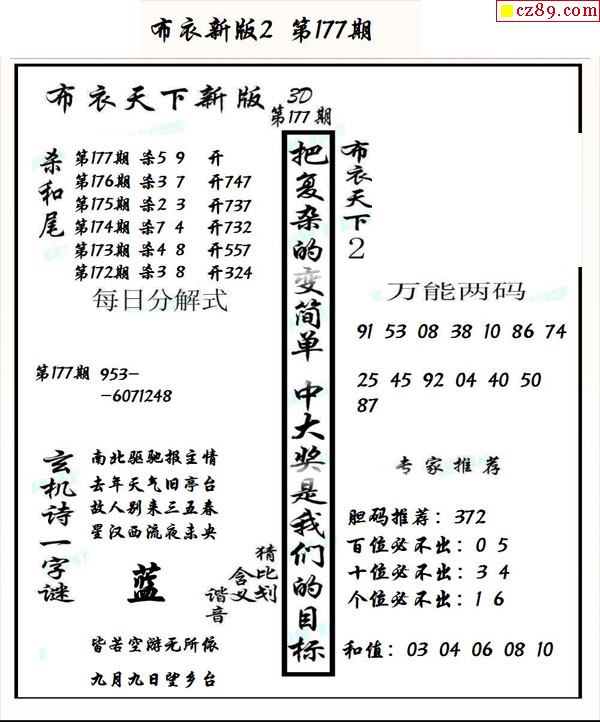 cz89.com
布衣新版2 第177期
布衣天下新版 3D
第177期
杀和尾
第177期 杀5 9 开
第176期 杀3 7 开747
第175期 杀2 3 开737
第174期 杀7 4 开732
第173期 杀4 8 开557
第172期 杀3 8 开324
每日分解式
第177期 953-
-6071248
玄机诗一字谜
南北驱驰报主情
去年天气旧亭台
故人别来三五春
星汉西流夜未央
蓝
猜比划
含义
谐音
皆苦空游无所依
九月九日望乡台
把复杂的变简单 中大奖是我们的目标
布衣天下2
万能两码
91 53 08 38 10 86 74
25 45 92 04 40 50
87
专家推荐
胆码推荐：372
百位必不出：0 5
十位必不出：3 4
个位必不出：1 6
和值：03 04 06 08 10